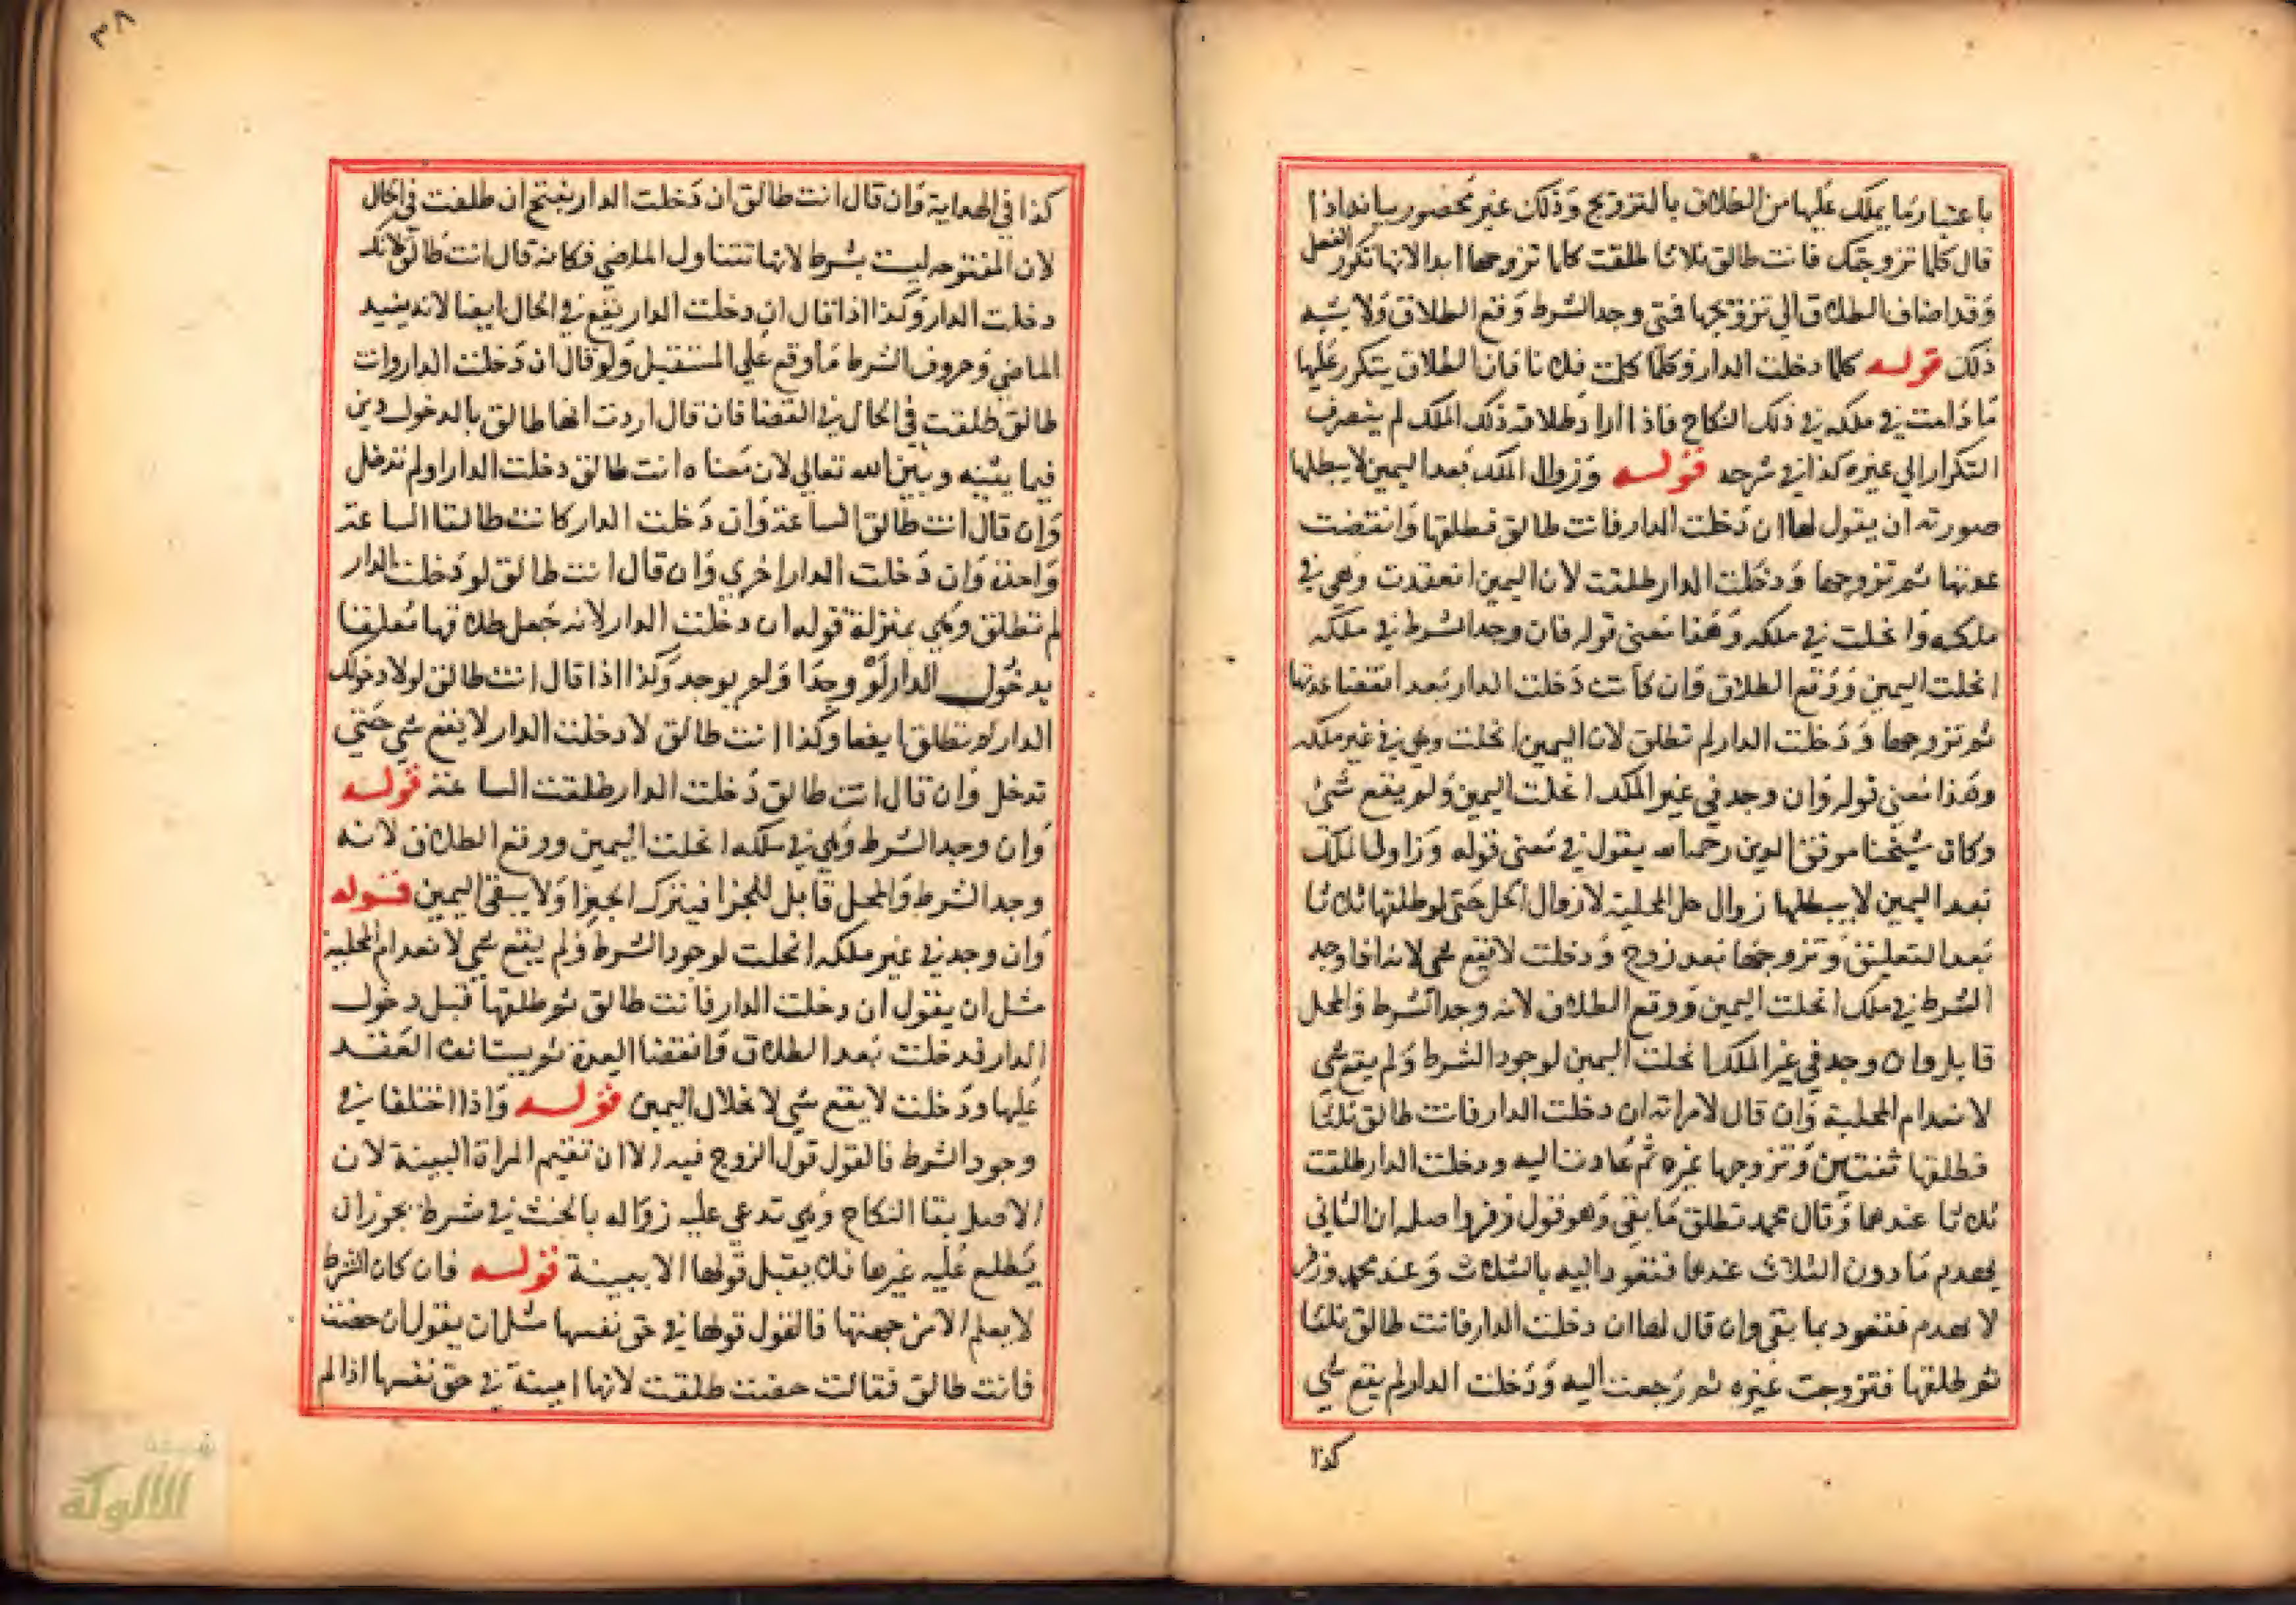 باعتبار ما يملك عليها من الطلاق بالتزويج وذلك غير محصور بيانه اذا
قال كلما تزوجتك فانت طالق ثلاثا طلقت كلما تزوجها ابدا لانها تكرر الفعل
وقد اضاف الطلاق الي تزويجها فمتي وجد الشرط وقع الطلاق ولا يشبه
ذلك قوله كلما دخلت الدار وكلما كلمت فلانا فان الطلاق يتكرر عليها
ما دامت في ملكه في ذلك النكاح فاذا اراد طلاق ذلك الملك لم ينصرف
التكرار الي غيره كذا في شرحه قوله وزوال الملك بعد اليمين لا يبطلها
صورته ان يقول لها ان دخلت الدار فانت طالق فطلقها وانقضت
عدتها ثم تزوجها ودخلت الدار طلقت لان اليمين انعقدت وهي في
ملكه وانحلت في ملكه وهذا معني قوله فان وجد الشرط في ملكه
انحلت اليمين ووقع الطلاق وان كانت دخلت الدار بعد انقضا عدتها
ثم تزوجها ودخلت الدار لم تطلق لان اليمين انحلت وهي في غير ملكه
وهذا معني قوله وان وجد في غير الملك انحلت اليمين ولم يقع شئ
وكان شيخنا موفق الدين رحمه الله يقول في معني قوله وزوال الملك
بعد اليمين لا يبطلها زوال حل المحلية لا زوال الحل حتي لو طلقها ثلاثا
بعد التعليق وتزوجها بعد زوج ودخلت لا يقع شي لانه اذا وجد
الشرط في ملك انحلت اليمين ووقع الطلاق لانه وجد الشرط والمحل
قابل وان وجد في غير الملك انحلت اليمين لوجود الشرط ولم يقع شي
لانعدام المحلية وان قال لامراته ان دخلت الدار فانت طالق ثلاثا
فطلقها ثنتين وتزوجها غيره ثم عادت اليه ودخلت الدار طلقت
ثلاثا عندهما وقال محمد تطلق ما بقي وهو قول زفر واصله ان الثاني
يهدم ما دون الثلاث عندهما فتعود اليه بالثلاث وعند محمد وزفر
لا يهدم فتعود بما بقي وان قال لها ان دخلت الدار فانت طالق ثلاثا
ثم طلقها فتزوجت غيره ثم رجعت اليه ودخلت الدار لم يقع شي
كذا
٣٨
كذا في الهداية وان قال انت طالق ان دخلت الدار بفتح ان طلقت في الحال
لان المفتوحه ليست بشرط لانها تتناول الماضي فكانه قال انت طالق لانك
دخلت الدار وكذا اذا قال اذ دخلت الدار يقع في الحال ايضا لانه يفيد
الماضي وحروف الشرط ما وقع علي المستقبل ولو قال ان دخلت الدار وانت
طالق طلقت في الحال في القضا فان قال اردت انها طالق بالدخول دين
فيما بينه وبين الله تعالي لان معناه انت طالق دخلت الدار اولم تدخل
وان قال انت طالق الساعة وان دخلت الدار كانت طالقا الساعة
واحدة وان دخلت الدار اخري وان قال انت طالق لو دخلت الدار
لم تطلق وهي بمنزلة قوله ان دخلت الدار لانه جعل طلاقها معلقا
بدخول الدار لو وجدا ولم يوجد وكذا اذا قال انت طالق لولا دخولك
الدار لم تطلق ايضا وكذا انت طالق لا دخلت الدار لا يقع شي حتي
تدخل وان قال انت طالق دخلت الدار طلقت الساعة قوله
وان وجد الشرط وهي في ملكه انحلت اليمين ووقع الطلاق لانه
وجد الشرط والمحل قابل للجزا فينزل الجزا ولا يبقي اليمين قوله
وان وجد في غير ملكه انحلت لوجود الشرط ولم يقع شي لانعدام المحلية
مثل ان يقول ان دخلت الدار فانت طالق ثم طلقها قبل دخول
الدار فدخلت بعد الطلاق وانقضا العدة ثم يستانف العقد
عليها ودخلت لا يقع شي لانحلال اليمين قوله واذا اختلفا في
وجود الشرط فالقول قول الزوج فيه الا ان تقيم المراة البينة لان
الاصل بقا النكاح وهي تدعي عليه زواله بالحنث في شرط يجوز ان
يطلع عليه غيرها فلا يقبل قولها الا ببينة قوله فان كان الشرط
لا يعلم الا من جهتها فالقول قولها في حق نفسها مثل ان يقول ان حضت
فانت طالق فقالت حضت طلقت لانها امينة في حق نفسها اذا لم
شبكة
الألوكة